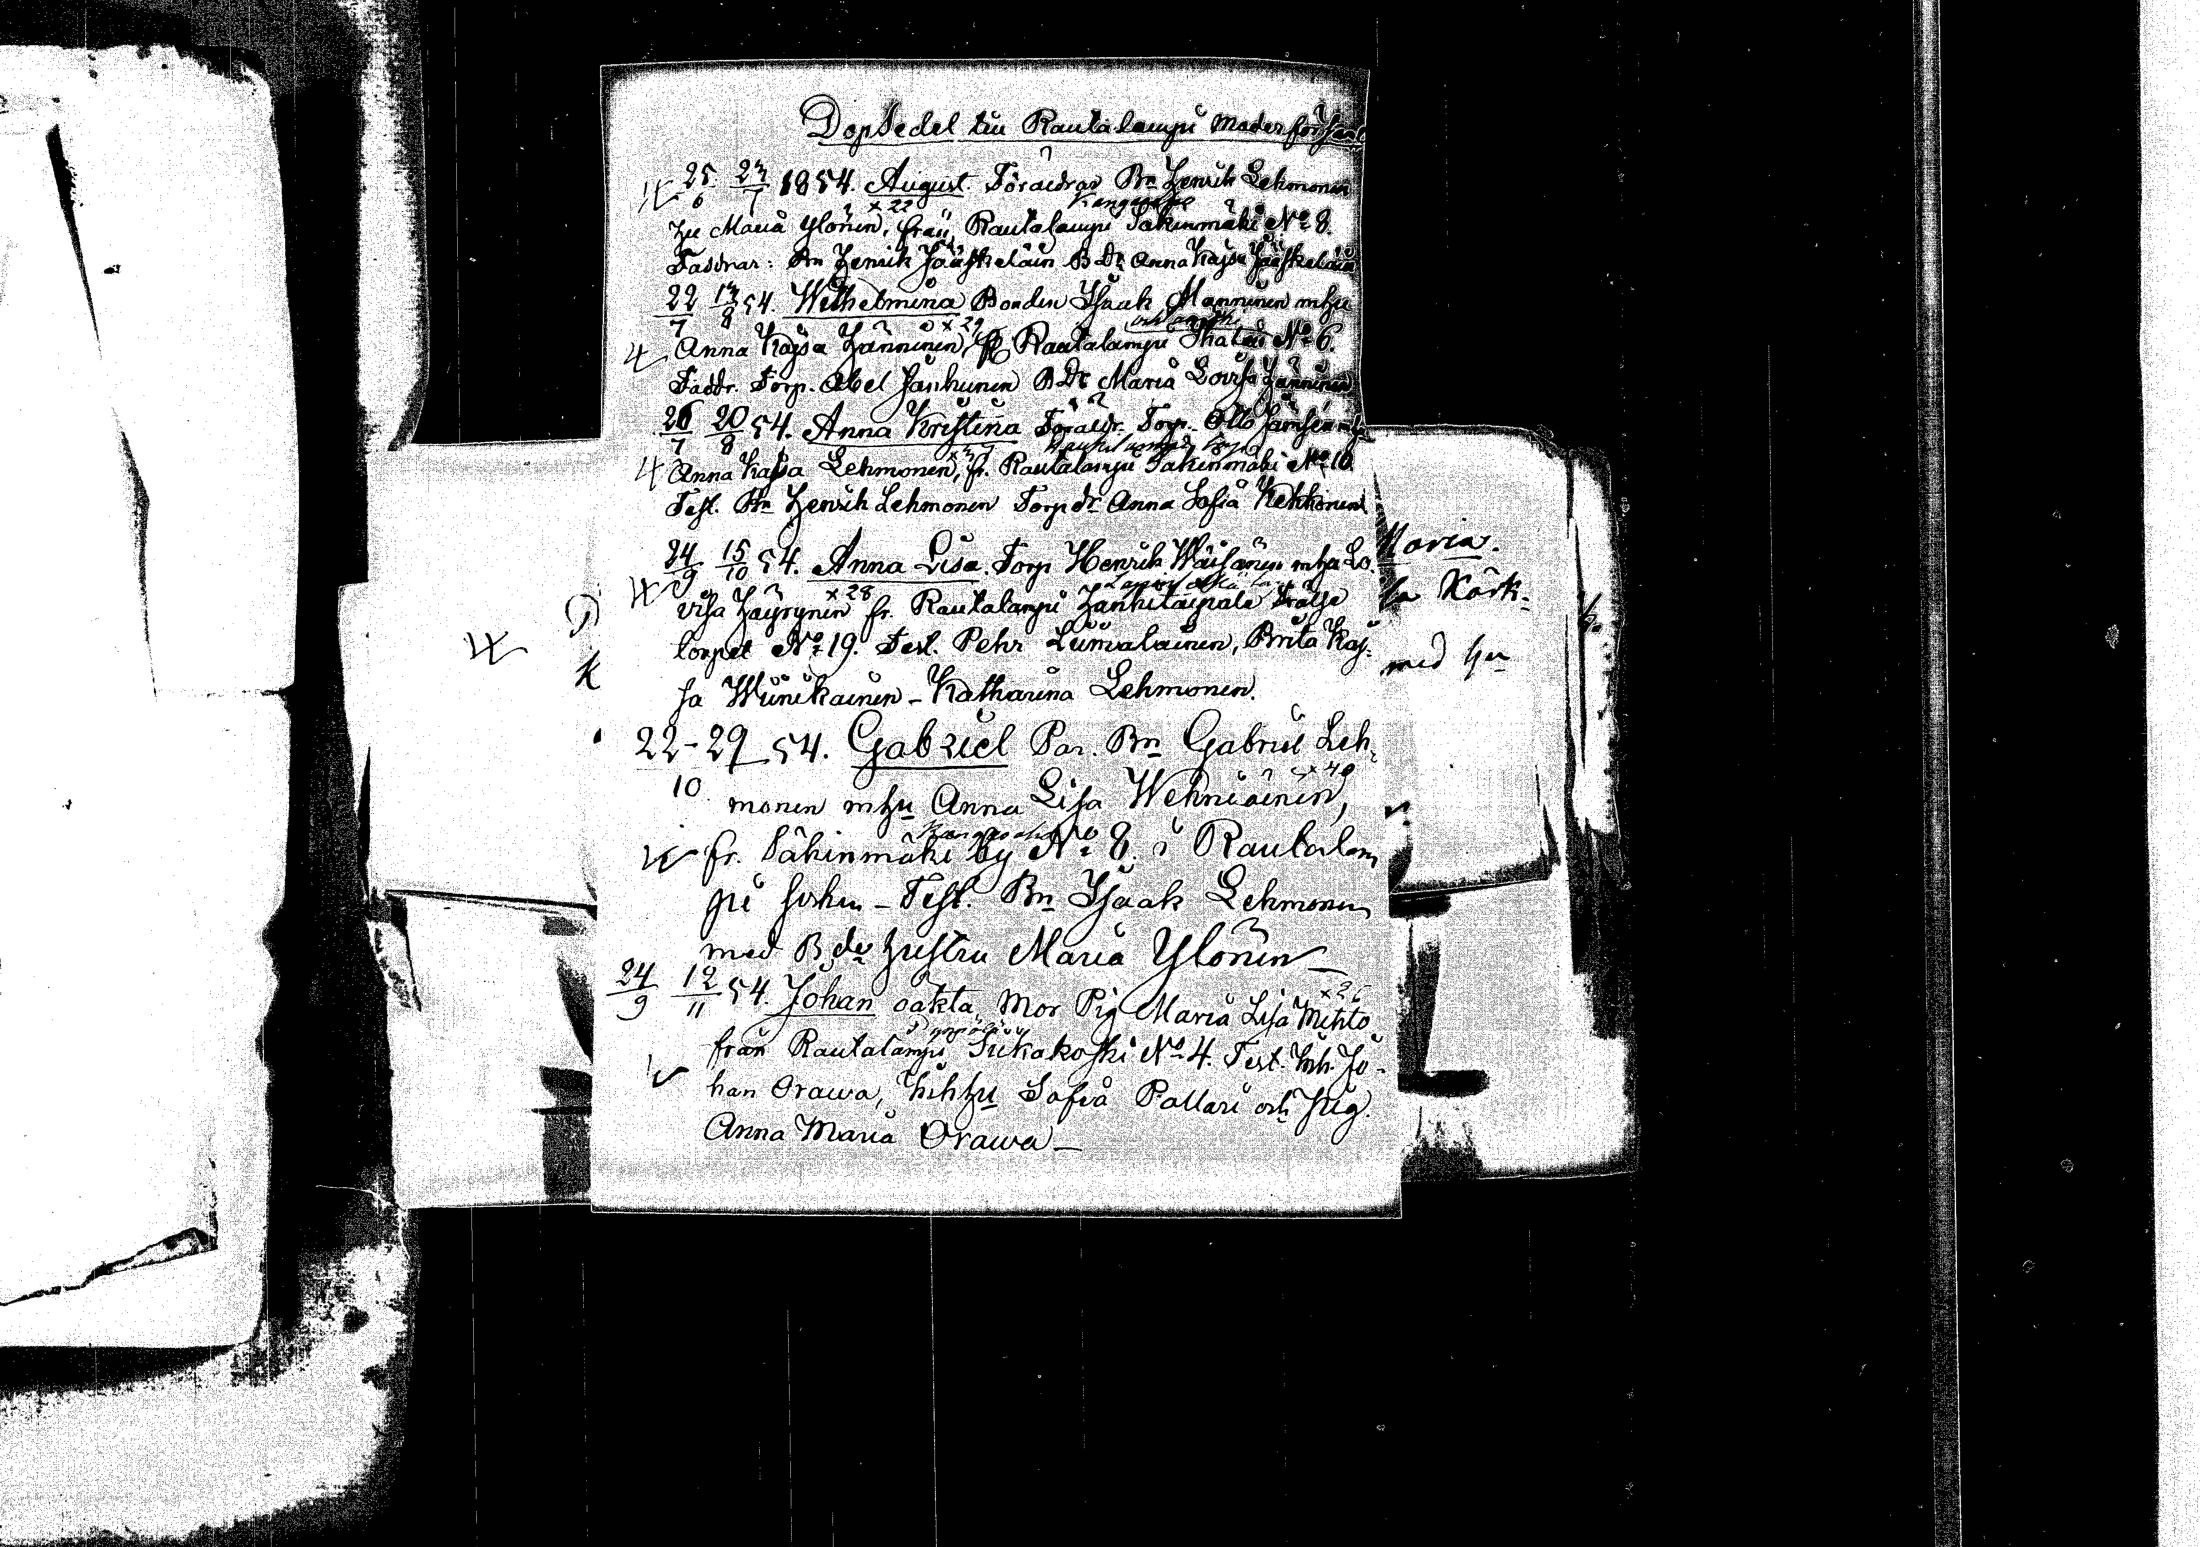 Dopsedel till Rautalampi Moderförsaml
25/6 23/7 1854. August. Föräldrar Bn Henrik Lehmonen
x 22 Kangasaho
hu Maria Ylönen, från Rautalampi Säkinmäki No 8.
Faddrar: Bn Henrik Jääskeläin B Dr Anna Kajsa Jääskeläin
22/7 13/8 54. Wilhelmina Bonden Isaak Manninen mhu
x 29
Anna Kajsa Hänninen, fr Rautalampi No 6.
Faddr. Torp. Abel Janhunen B Dr Maria Lovisa Hänninen
26/7 20/8 54. Anna Kristina Föräldr. Torp. Otto Jämsen mhu
Anna Kajsa Lehmonen, fr. Rautalampi Säkinmäki No 10
Test. Bn Henrik Lehmonen Torp dr Anna Sofia Kekkonen
24/9 15/10 54. Anna Lisa. Torp Henrik Wäisänen mhu Lo-
x 28
visa Häyrynen fr. Rautalampi Hankitaipale frälse
torpet No 19. Test. Pehr Liimalainen, Brita Kaj-
sa Wiinikainen - Katharina Lehmonen.
22-29/10 54. Gabriel Par. Bn Gabriel Leh-
x 40
monen mhu Anna Lisa Wehniäinen,
Kangasaho
fr. Säkinmäki by No 8 i Rautalam
pi socken - Test. Bn Isaak Lehmonen
med B dr hustru Maria Ylönen -
24/9 12/11 54. Johan oäkta, Mor Pig Maria Lisa Mehto
från Rautalampi Siikakoski No 4. Test. Inh. Jo-
han Orawa, Inh hu Sofia Pallari och pig.
Anna Maria Orawa -
Maria.
sa Kärk-
med hu